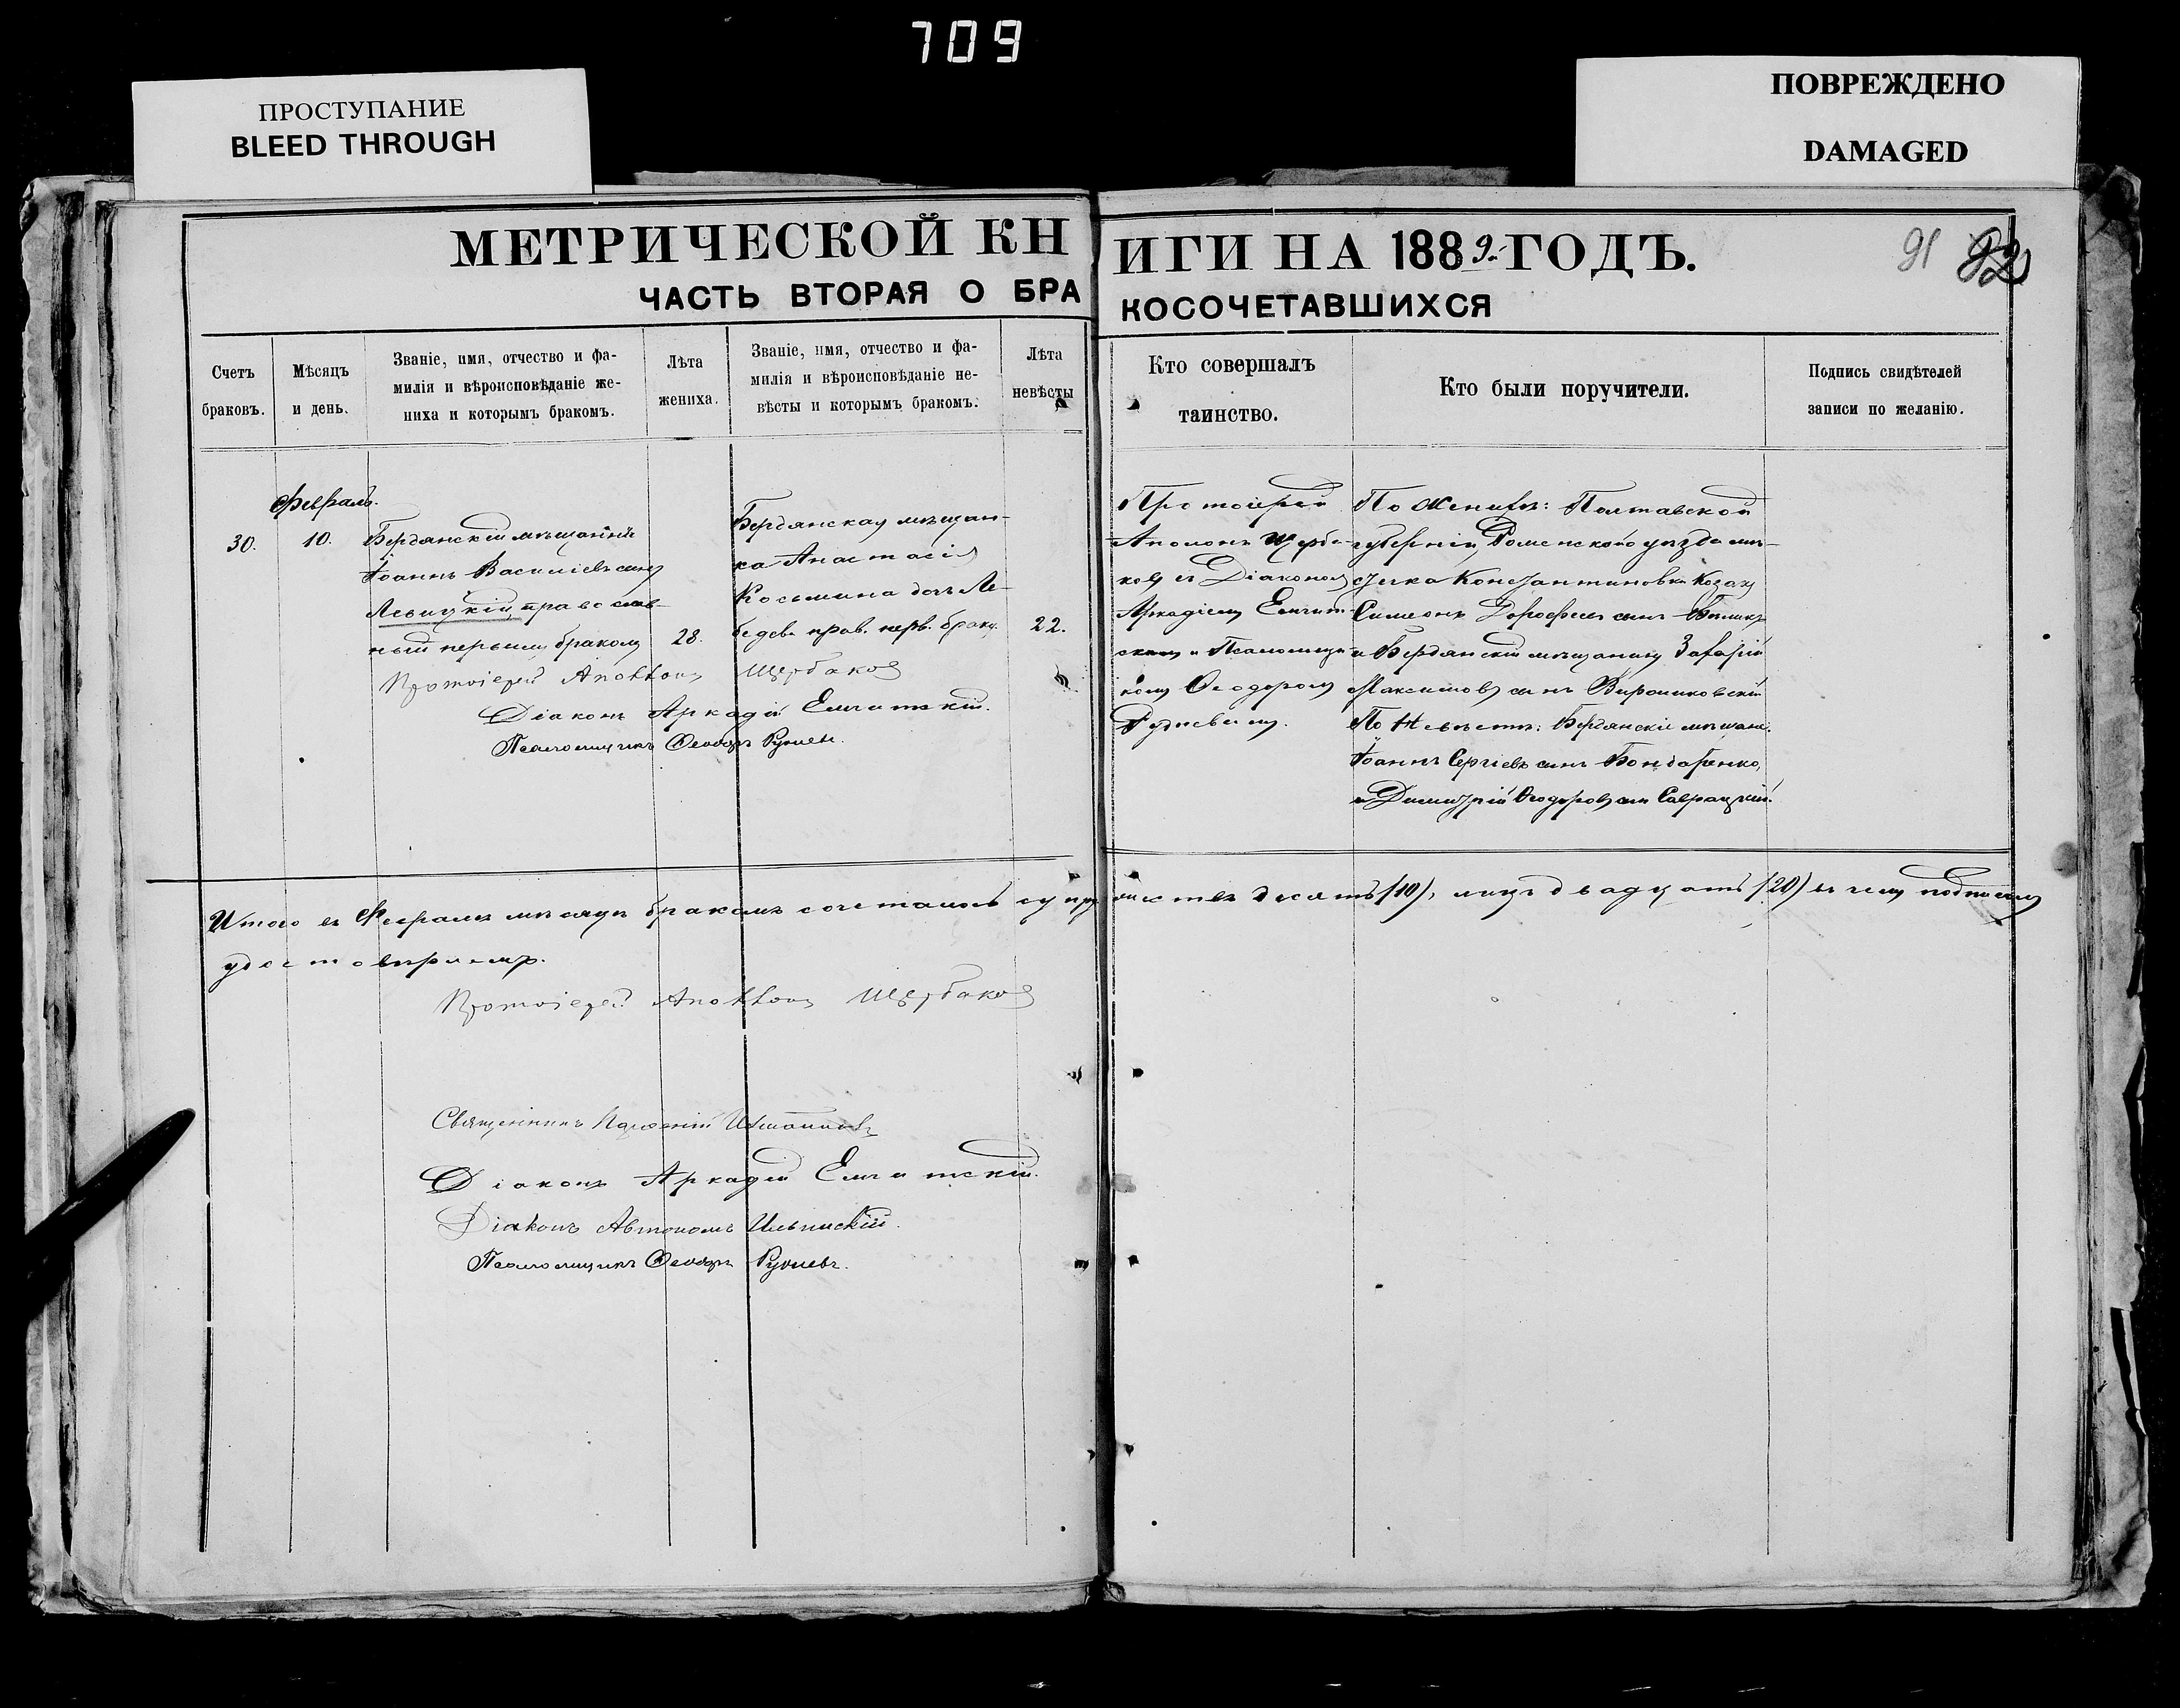 709
ПРОСТУПАНИЕ
BLEED THROUGH
ПОВРЕЖДЕНО
DAMAGED
МЕТРИЧЕСКОЙ КНИГИ НА 1889 ГОДЪ.
91 92
ЧАСТЬ ВТОРАЯ О БРАКОСОЧЕТАВШИХСЯ
Счетъ
браковъ.
Мѣсяцъ
и день.
Званіе, имя, отчество и фа-
милія и вѣроисповѣданіе же-
ниха и которымъ бракомъ.
Лѣта
жениха.
Званіе, имя, отчество и фа-
милія и вѣроисповѣданіе не-
вѣсты и которымъ бракомъ.
Лѣта
невѣсты
Кто совершалъ
таинство.
Кто были поручители.
Подпись свидѣтелей
записи по желанію.
30.
Февраль.
10.
Бердянскій мѣщанинъ
Іоаннъ Василіевъ сынъ
Левицкій православ-
ный первымъ бракомъ
28.
Бердянская мѣщан-
ка Анастасія
Косьмина дочь Ле-
бедева прав. перв. брак.
22.
Протоіерей
Аполонъ Щерба-
ковъ съ Діакономъ
Аркадіемъ
и Псаломщи-
комъ Ѳеодоромъ
Рудневымъ.
По Женихѣ: Полтавской
губерніи, Роменского уѣзда мѣ-
стечка Константиновки Козакъ
Симеонъ Дорофеевъ сынъ
и Бердянскій мѣщанинъ Захарій
Максимовъ сынъ
По Невѣстѣ: Бердянскіе мѣщане:
Іоаннъ Сергіевъ сынъ Бондаренко,
и Димитрій Ѳеодоровъ сынъ
Протоіерей Аполлонъ Щербаковъ
Діаконъ Аркадій
Псаломщикъ Ѳеодоръ Рудневъ.
Итого въ Февралѣ мѣсяцѣ бракомъ сочеталось супружествъ десять (10), лицъ двадцать (20) въ чемъ подписомъ
удостовѣряемъ.
Протоіерей Аполлонъ Щербаковъ
Священникъ
Діаконъ Аркадій
Діаконъ Автономъ Ильинскій.
Псаломщикъ Ѳеодоръ Рудневъ.